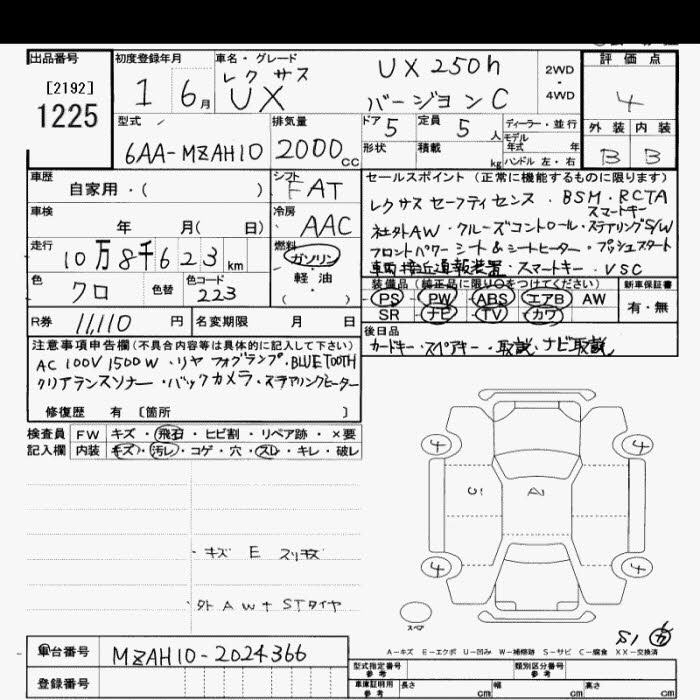 出品番号
[2192]
1225
初度登録年月
1 6月
車名・グレード
レクサス
UX
UX 250h
バージョンC
2WD
・
4WD
評価点
4
外装 内装
B B
型式
6AA-MZAH10
排気量
2000cc
ドア 5
定員 5人
形状
積載 kg
ディーラー・並行
モデル年式 年
ハンドル 左・右
車歴
自家用・( )
シフト
FAT
車検
年 月( 日)
冷房
AAC
走行
10万8千623km
燃料
ガソリン
・
軽油
( )
色
クロ
色替
色コード
223
セールスポイント (正常に機能するものに限ります)
レクサスセーフティセンス・BSM・RCTA
スマートキー
社外AW・クルーズコントロール・ステアリングS/W
フロントパワーシート&シートヒーター・プッシュスタート
車両接近通報装置・スマートキー・VSC
装備品(純正品に限り○をつけてください)
PS PW ABS エアB AW
SR ナビ TV カワ
新車保証書
有・無
R券 11,110円
名変期限 月 日
後日品
カードキー・スペアキー・取説・ナビ取説
注意事項申告欄(不具合内容等は具体的に記入して下さい)
AC100V 1500W・リヤフォグランプ・BLUETOOTH
クリアランスソナー・バックカメラ・ステアリングヒーター
修復歴 有 〔箇所 〕
検査員
記入欄
FW キズ・飛石・ヒビ割・リペア跡・×要
内装 キズ・汚レ・コゲ・穴・スレ・キレ・破レ
・キズ E スリキズ
・外AW+STタイヤ
4 4
C1 A1
4 4
スペア
S1 カ
A-キズ E-エクボ U-凹み W-補修跡 S-サビ C-腐食 XX-交換済
車台番号 MZAH10-2024366
登録番号
型式指定番号
参考
類別区分番号
参考
車庫証明用
参考
長さ cm
幅 cm
高さ cm